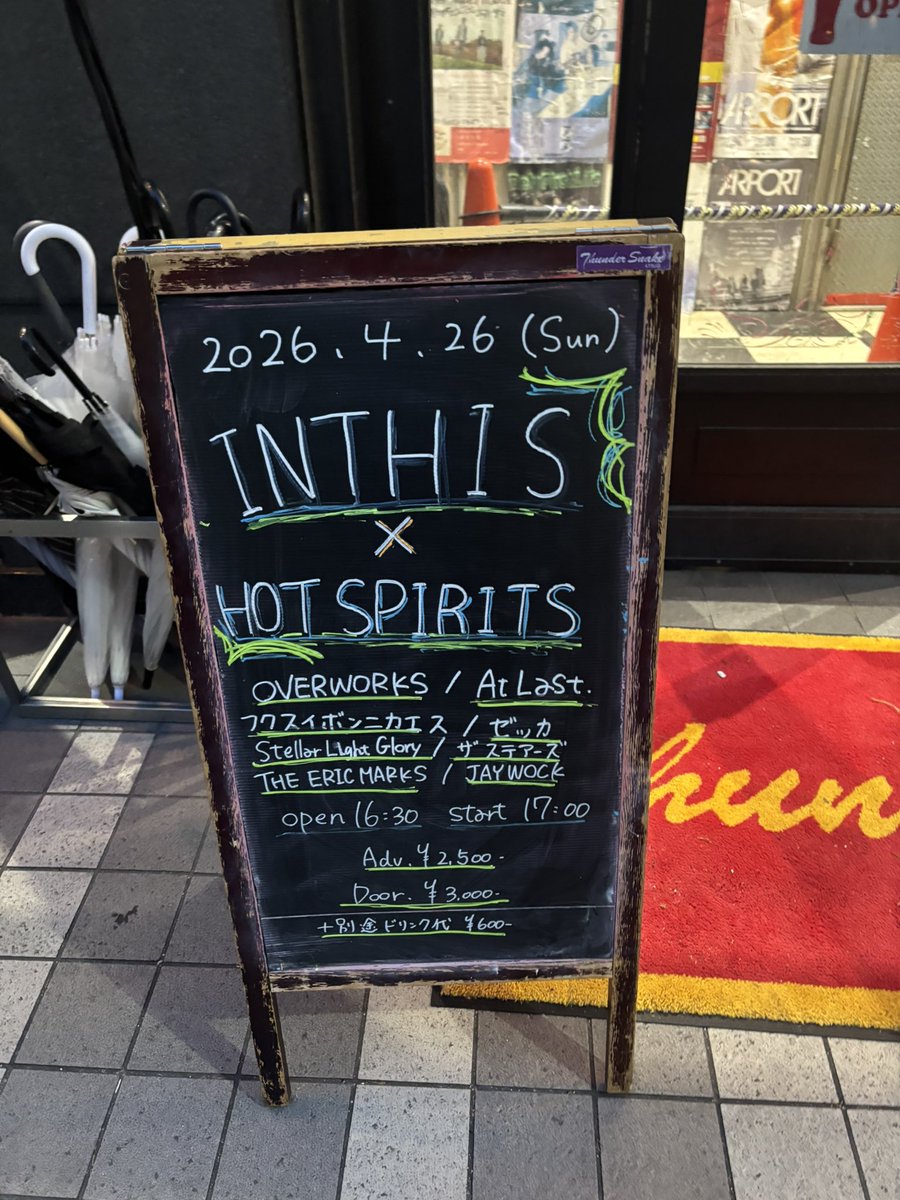 OPE
ARPORT
ARPORT
Thunder Snake
2026.4.26 (Sun)
INTHIS
×
HOT SPIRITS
OVERWORKS / At Last.
フクスイボンニカエス / ゼッカ
Stellar Light Glory / ザステアーズ
THE ERIC MARKS / JAYWOCK
open 16:30 start 17:00
Adv. ¥2,500-
Door. ¥3,000-
+別途ドリンク代 ¥600-
hun